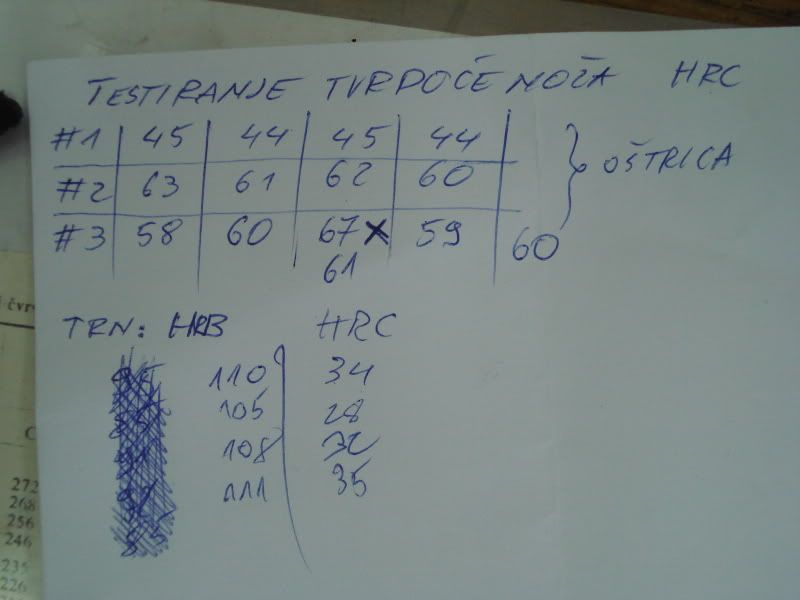 TESTIRANJE TVRDOĆE NOŽA HRC
#1 45 44 45 44
#2 63 61 62 60 OŠTRICA
#3 58 60 67 x 59 60
61
TRN: HRB HRC
110 34
105 28
108 32
111 35
272
268
256
246
235
226